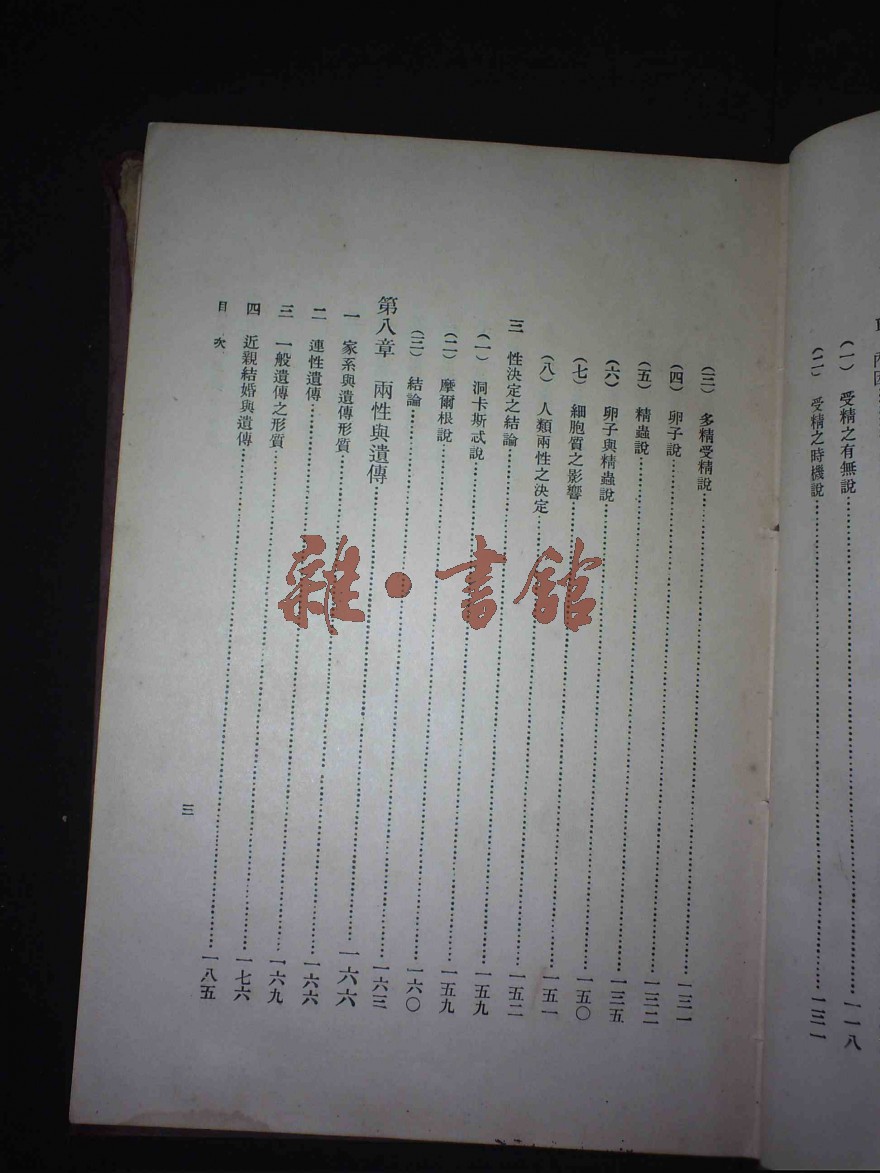 (一) 受精之有無說……一一八
(二) 受精之時機說……一三一
(三) 多精受精說……一三一
(四) 卵子說……一三二
(五) 精蟲說……一三五
(六) 卵子與精蟲說……一五〇
(七) 細胞質之影響……一五一
(八) 人類兩性之決定……一五二
三 性決定之結論……一五九
(一) 洞卡斯忒說……一五九
(二) 摩爾根說……一六〇
(三) 結論……一六三
第八章 兩性與遺傳……一六六
一 家系與遺傳形質……一六六
二 連性遺傳……一六九
三 一般遺傳之形質……一七六
四 近親結婚與遺傳……一八五
目次
三
雜·書館